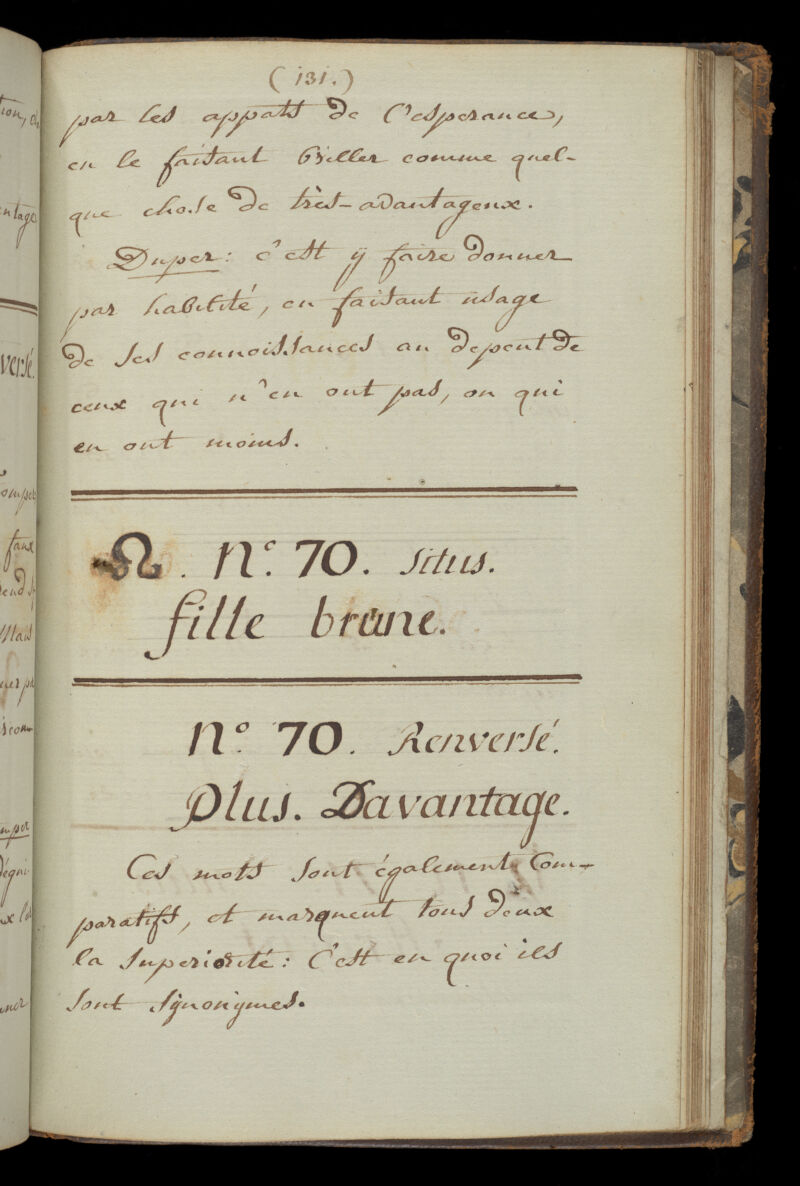 (131.)
par les appats de l'esperance,
en le faisant briller comme quel-
que chose de très-avantageux.
Duper: c'est y faire donner
par habilité, en faisant usage
de ses connoissances au depent de
ceux qui n'en ont pas, ou qui
en ont moins.
Ω. N.° 70. Situs.
fille brune.
N.° 70. Renversé.
Plus. Davantage.
Ces mots sont également Com-
paratifs, et marquent tous deux
la Superiorité: C'est en quoi ils
sont Synonymes.